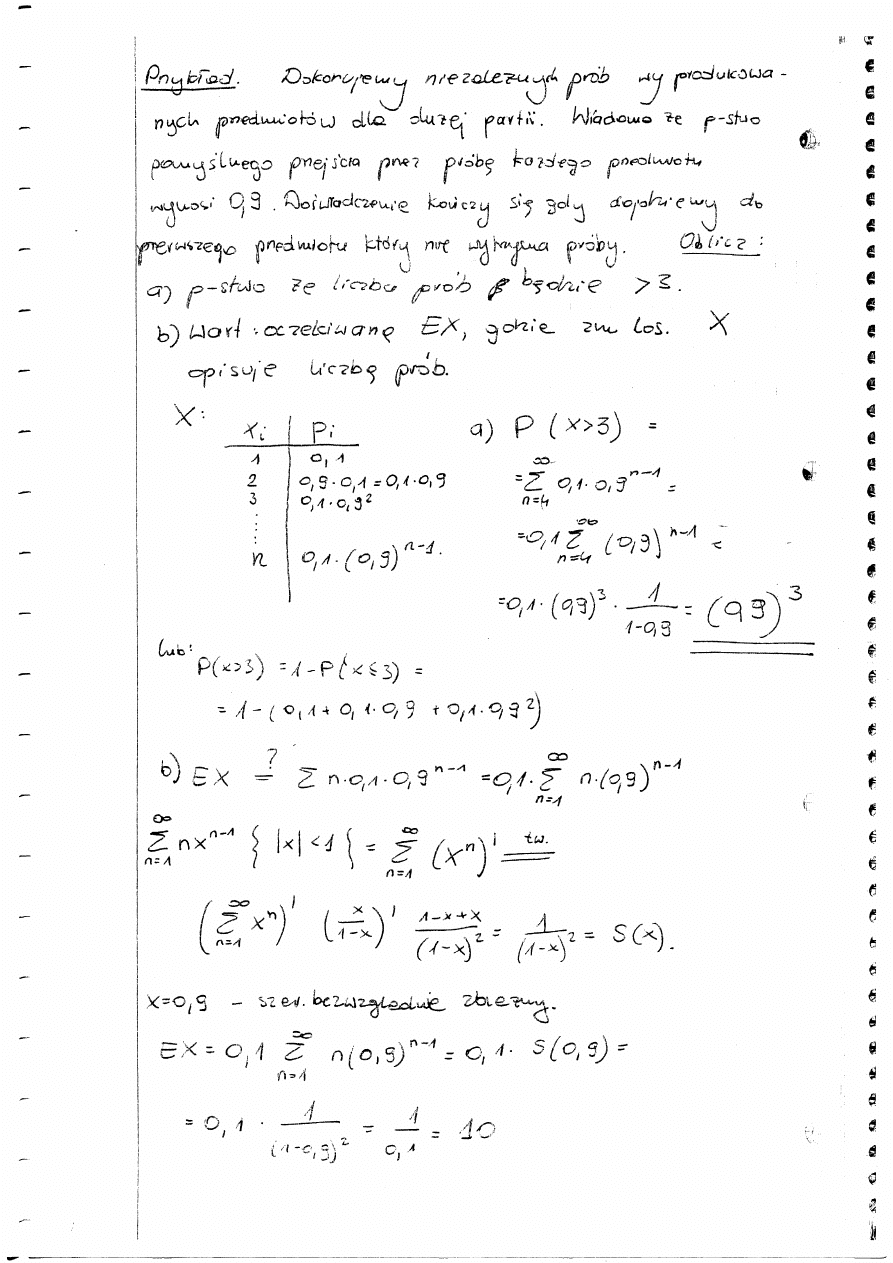 Przykład. Dokonujemy niezależnych prób wyprodukowa-
nych przedmiotów dla dużej partii. Wiadomo że p-stwo
pomyślnego przejścia przez próbę każdego przedmiotu
wynosi 0,9. Doświadczenie kończy się gdy dojdziemy do
pierwszego przedmiotu który nie wytrzyma próby. Oblicz:
a) p-stwo że liczba prób będzie >3.
b) Wart. oczekiwaną EX, gdzie zm los. X
opisuje liczbę prób.
X:
xi | pi
1 | 0,1
2 | 0,9·0,1=0,1·0,9
3 | 0,1·0,9²
n | 0,1·(0,9)^{n-1}.
a) P(x>3) =
= ∑_{n=4}^{∞} 0,1·0,9^{n-1} =
=0,1 ∑_{n=4}^{∞} (0,9)^{n-1} =
=0,1·(0,9)³ · 1/(1-0,9) = (0,9)³
lub:
P(x>3) = 1-P(x≤3) =
= 1-(0,1+0,1·0,9+0,1·0,9²)
b) EX =? ∑ n·0,1·0,9^{n-1} =0,1·∑_{n=1}^{∞} n·(0,9)^{n-1}
∑_{n=1}^{∞} nx^{n-1} { |x|<1 { = ∑_{n=1}^{∞} (x^n)' tw. =
(∑_{n=1}^{∞} x^n)' (x/(1-x))' (1-x+x)/(1-x)² = 1/(1-x)² = S(x).
x=0,9 - szer. bezwzględnie zbieżny.
EX = 0,1 ∑_{n=1}^{∞} n(0,9)^{n-1} = 0,1· S(0,9) =
= 0,1 · 1/(1-0,9)² = 1/0,1 = 10